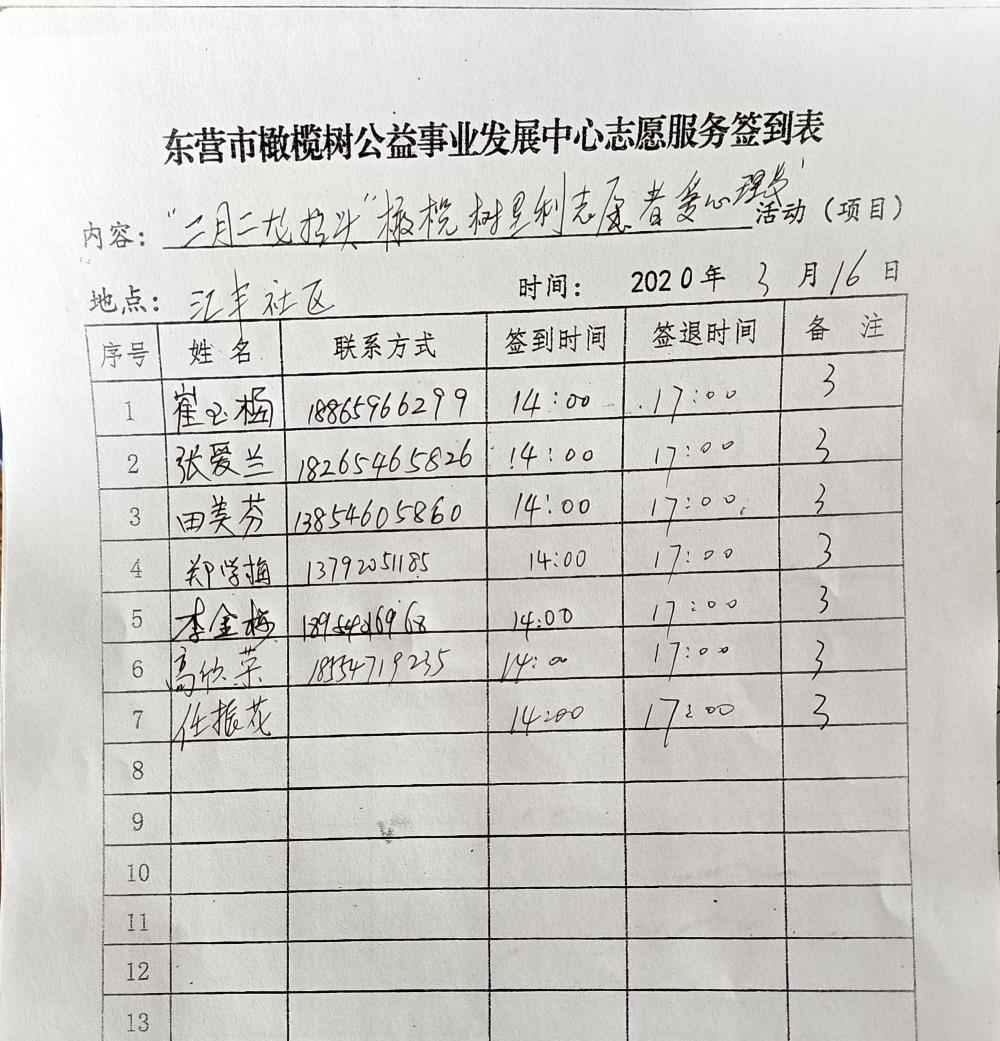 东营市橄榄树公益事业发展中心志愿服务签到表
内容：“二月二龙抬头”橄榄树垦利志愿者爱心理发 活动（项目）
地点：汇丰社区 时间： 2020年 3 月 16 日
序号 姓名 联系方式 签到时间 签退时间 备 注
1 崔玉梅 18865966299 14:00 17:00 3
2 张爱兰 18265465826 14:00 17:00 3
3 田美芬 13854605860 14:00 17:00 3
4 郑学梅 13792051185 14:00 17:00 3
5 李金梅 14:00 17:00 3
6 高欣荣 18554719235 14:00 17:00 3
7 任振花 14:00 17:00 3
8
9
10
11
12
13